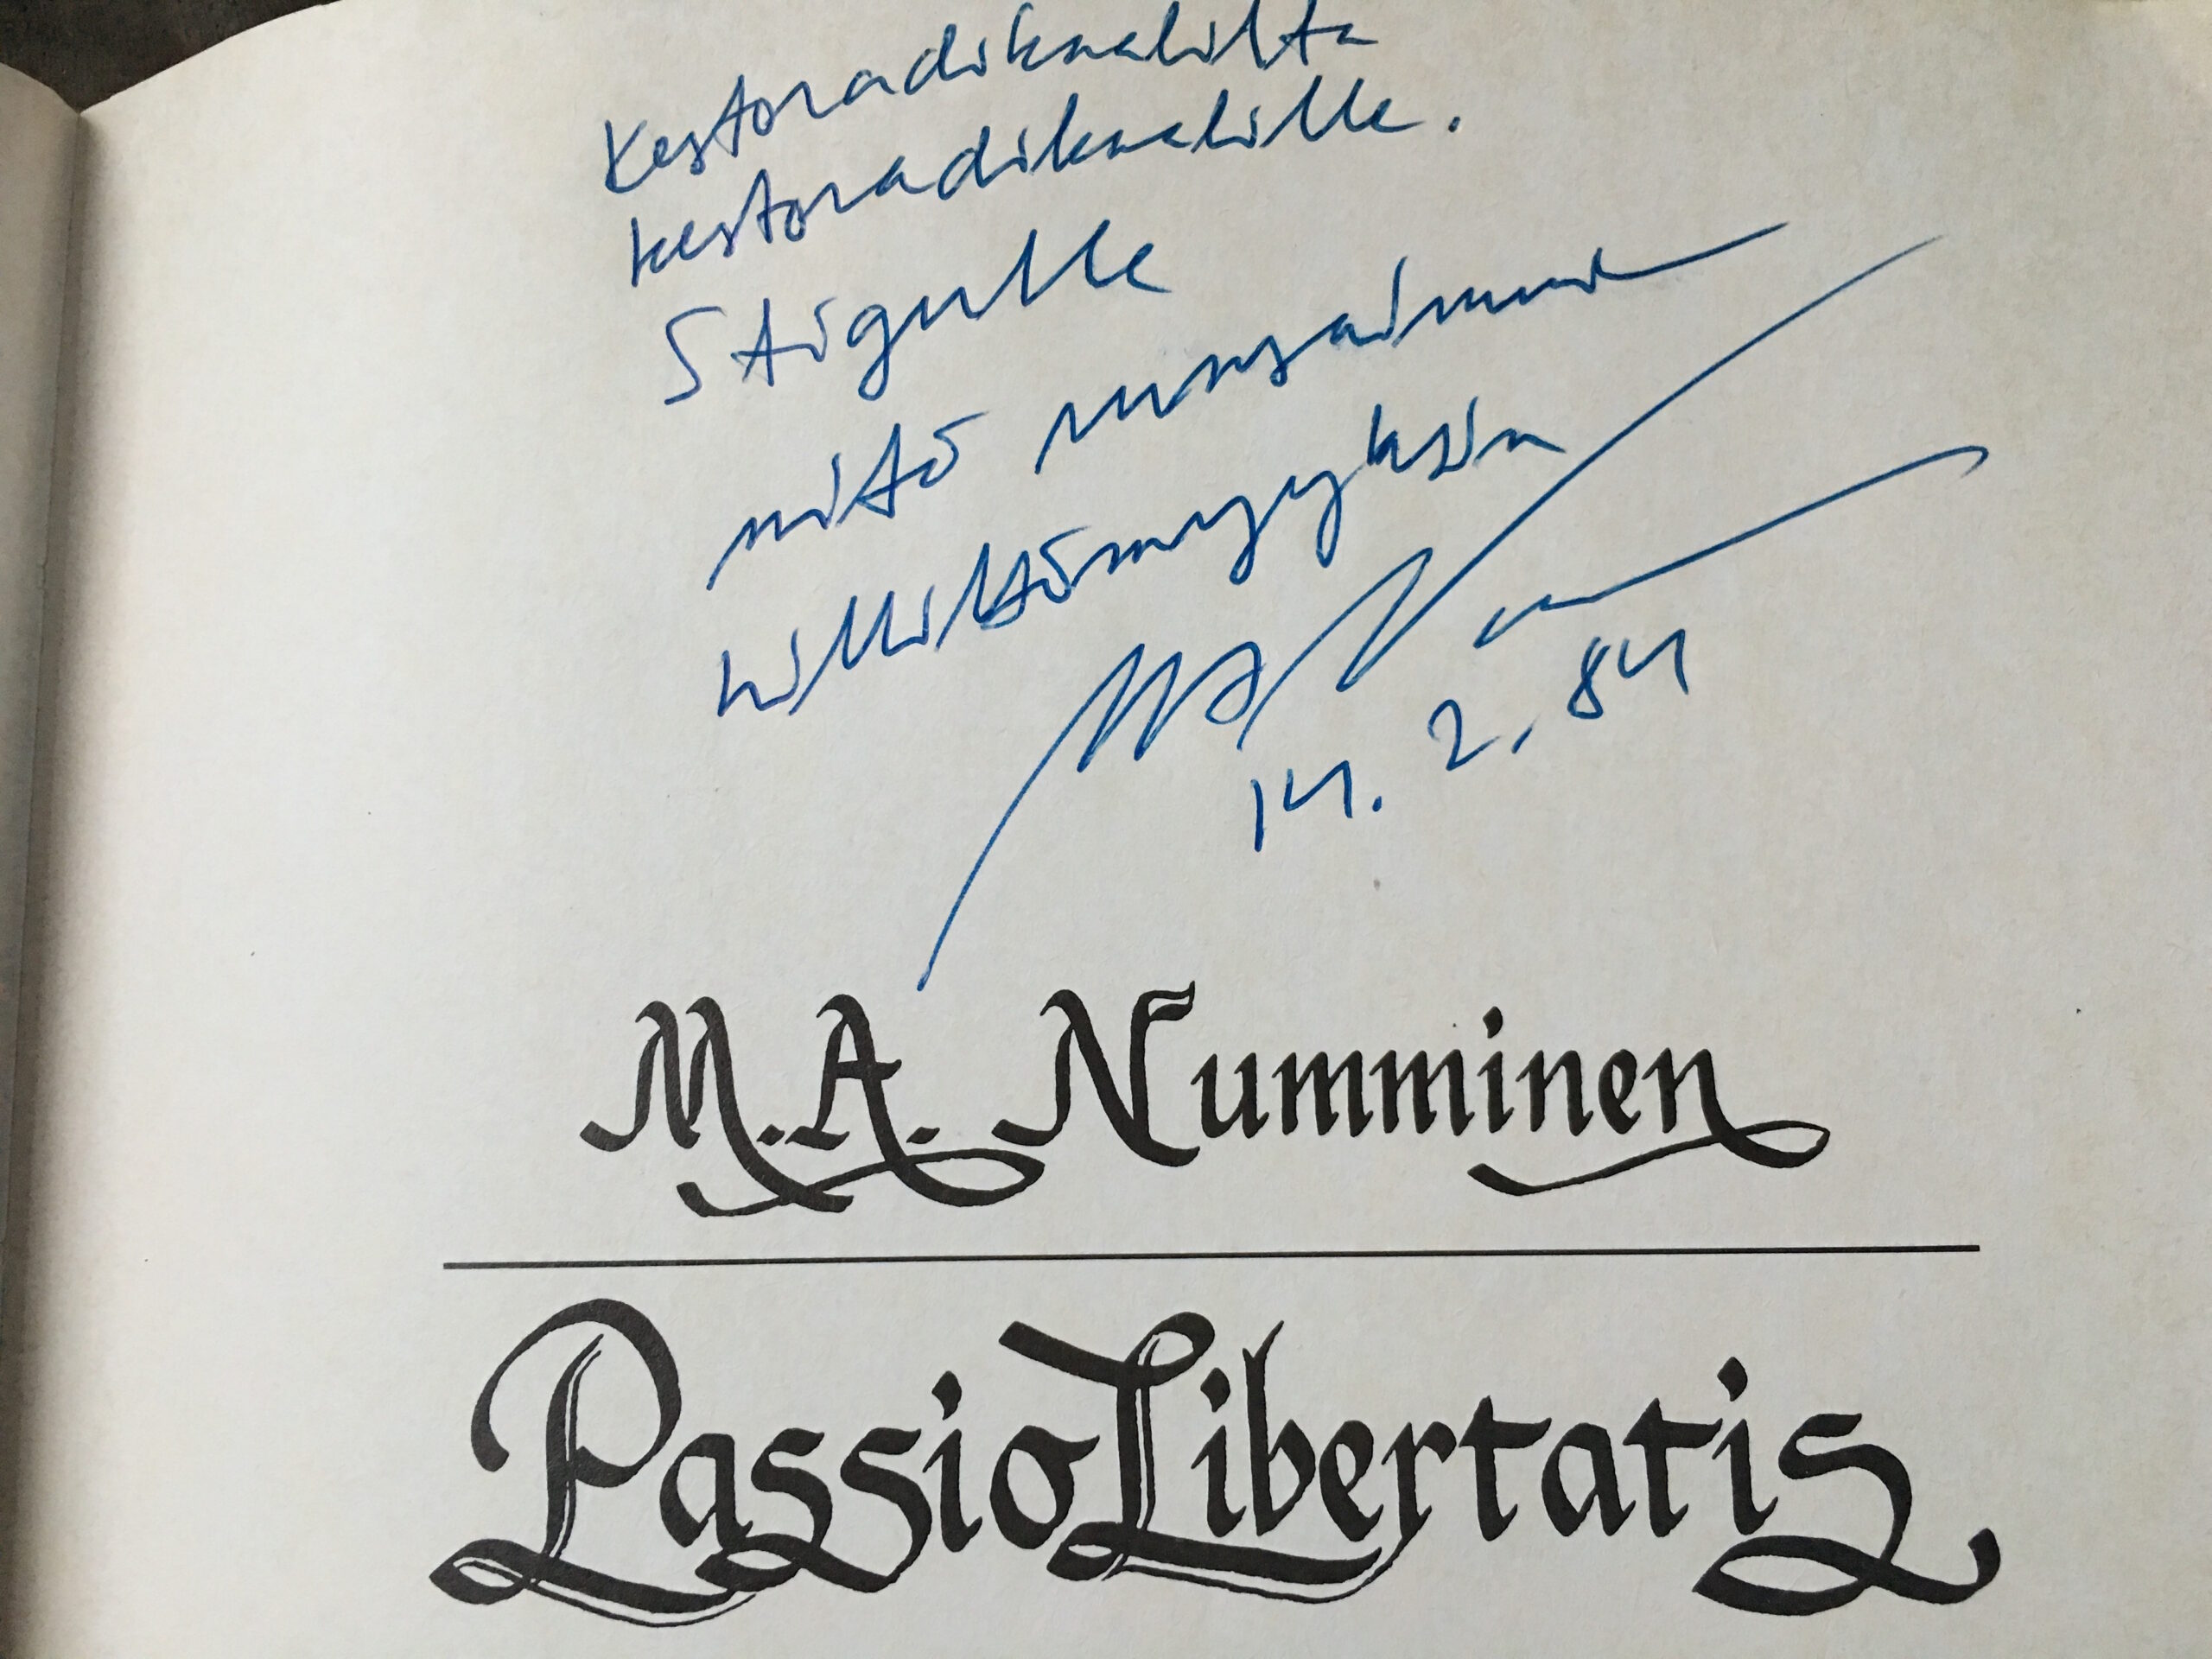 Kestoradikaalilta
kestoradikaalille.
Stigulle
mitö runsaimmin
hillittömyyksin
14. 2. 84
M.A. Numminen
Passio Libertatis